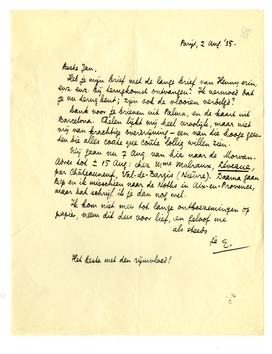 Parijs, 2 Aug. '35.
Beste Jan,
Heb je mijn brief met de lange brief van Henny erin
enz. enz. bij terugkomst ontvangen? Ik vermoed dat
je nu terug bent; zijn ook de vlooien verbolgen?
Dank voor je brieven uit Palma, en de kaart uit
Barcelona. Thelen lijkt mij heel vroolijk, maar niet
vrij van krachtige overdrijving – een van die hooge gees-
ten die alles coûte que coûte lollig willen zien.
Wij gaan nu 7 Aug. van hier naar de Morvan.
Adres tot ± 15 Aug: chez Mme Malraux, Levesque,
par Châteauneuf, Val-de-Bargis (Nièvre). Daarna gaan
Bep en ik misschien naar de Nothe in Aix-en-Provence,
maar dat schrijf ik je dan nog wel.
Ik kom niet meer tot lange ontboezemingen op
papier, neem dit dus voor lief, en geloof me
als steeds
je E.
Het beste met den rijmvloed!